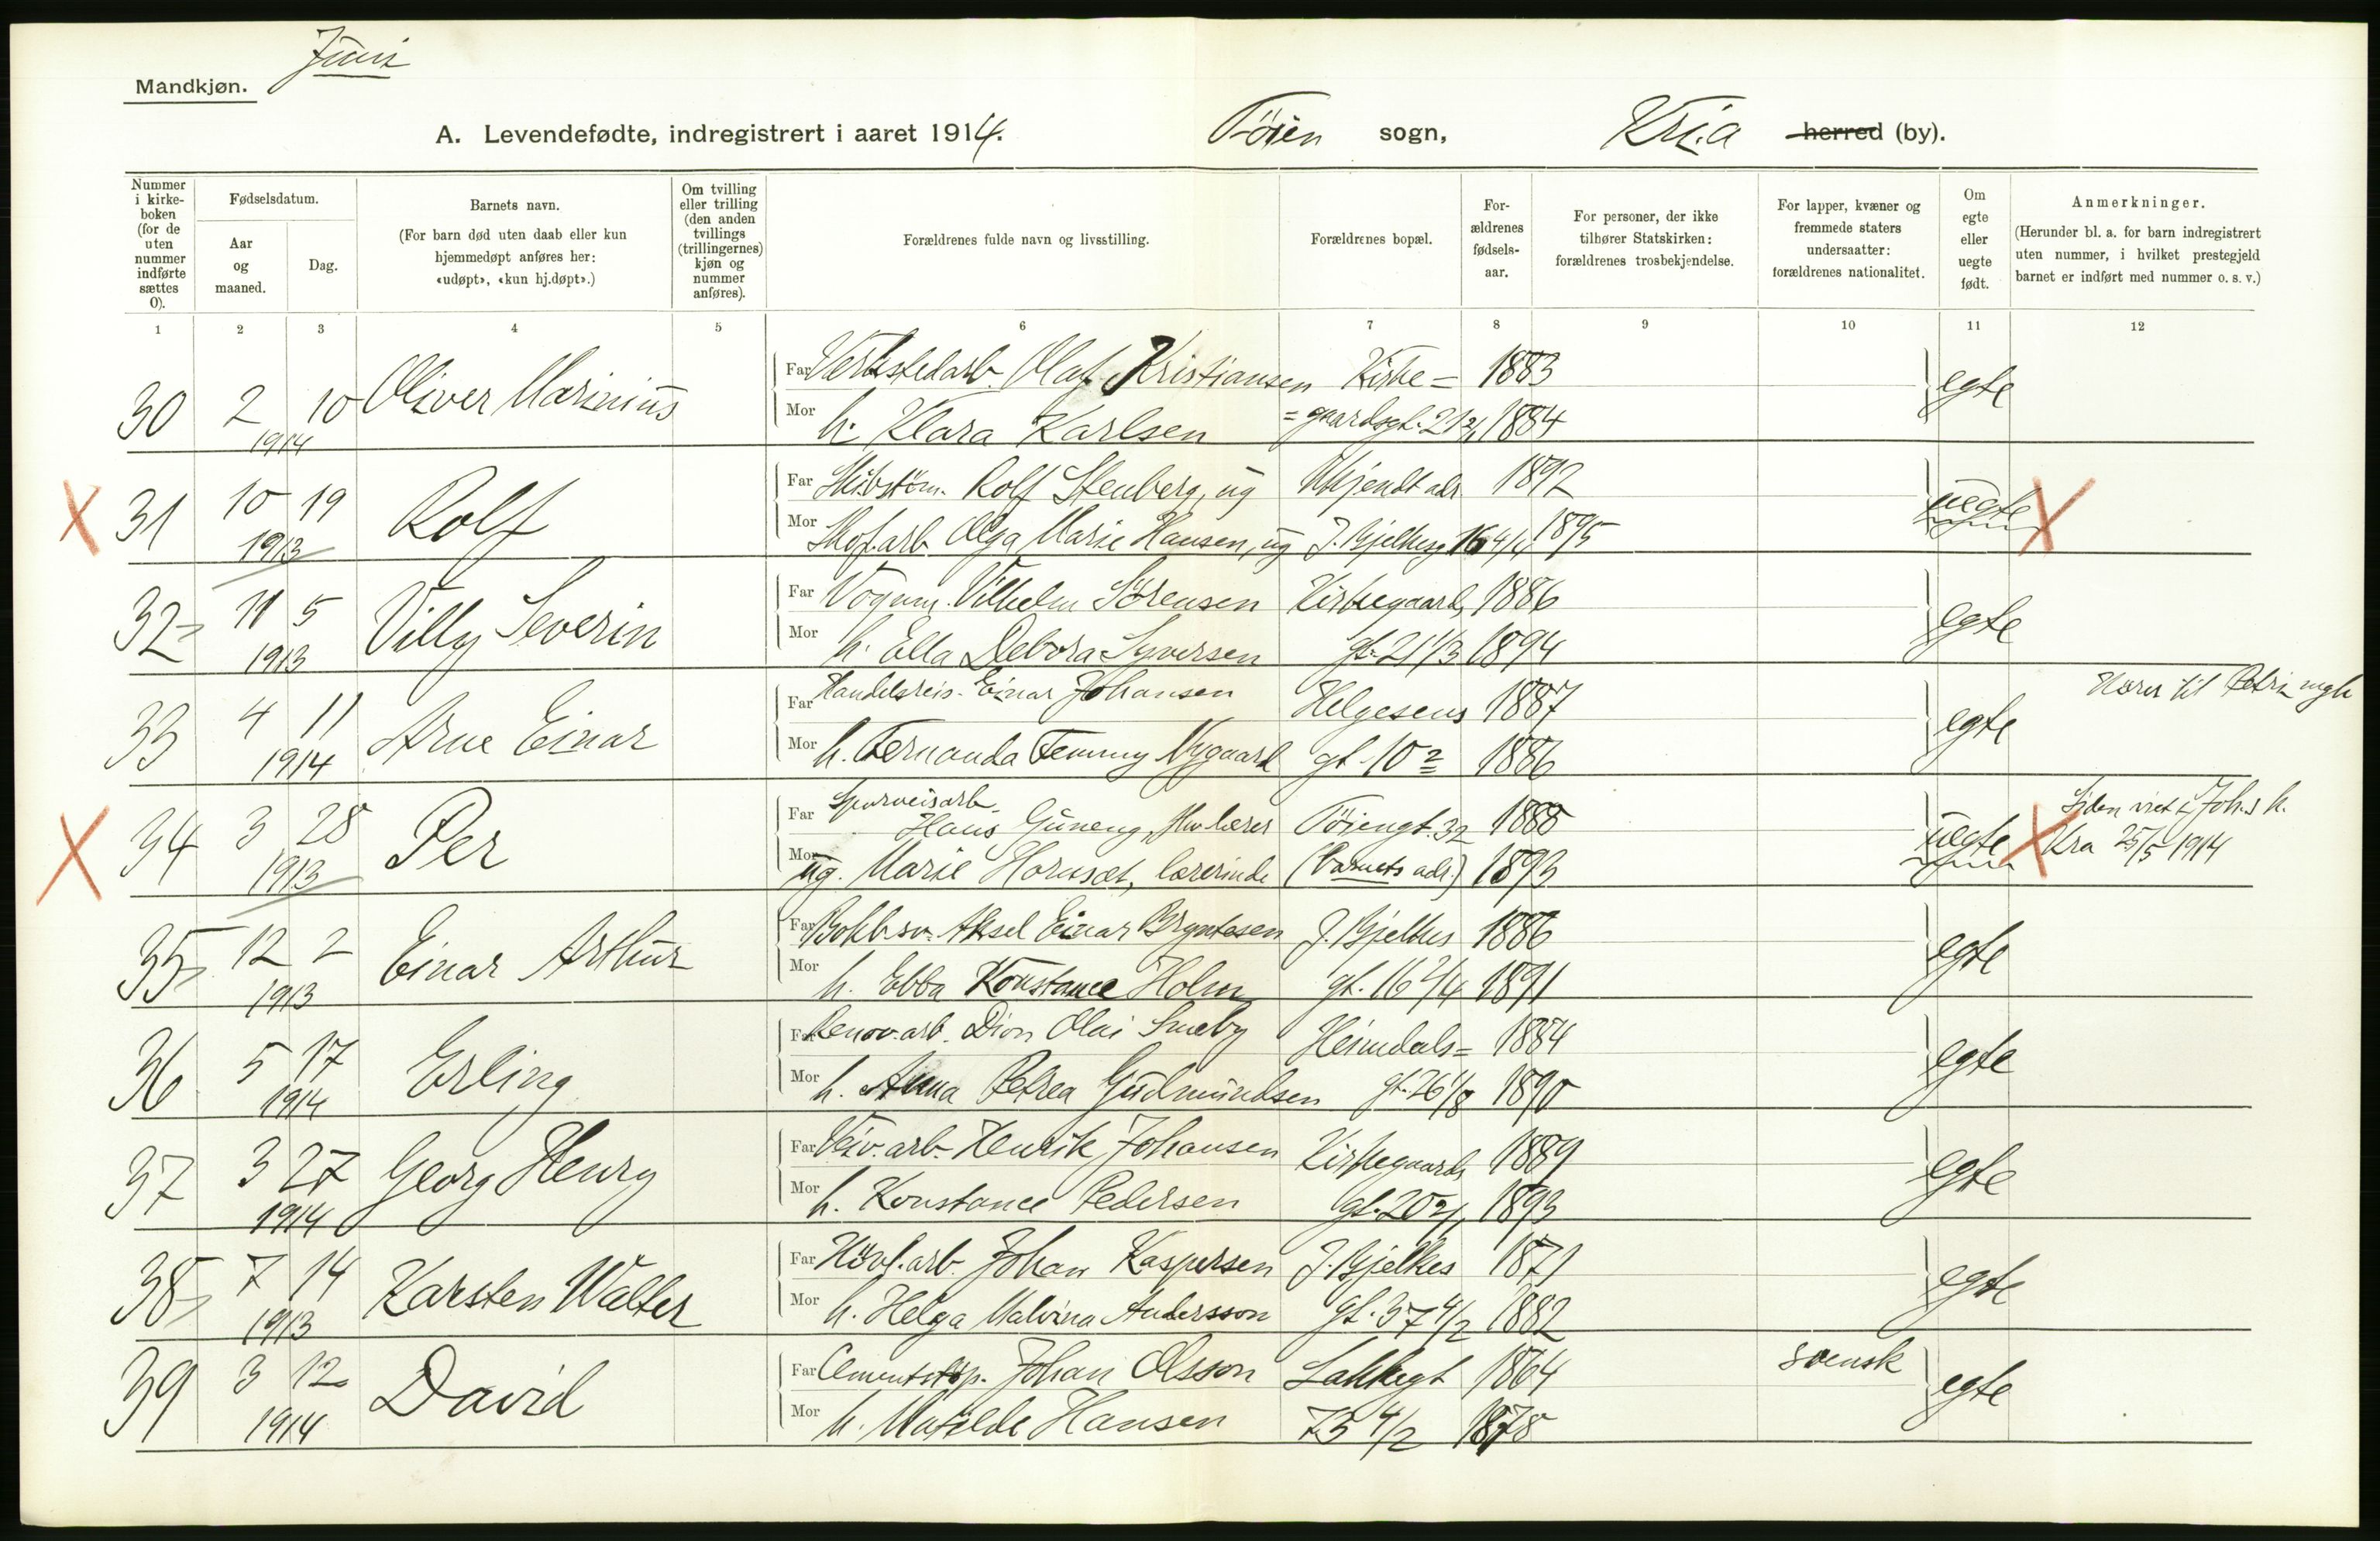 Juni
Mandkjøn.
A. Levendefødte, indregistrert i aaret 1914. Tøien sogn, Kria herred (by).
Nummer i kirke-boken (for de uten nummer indførte sættes 0).
Fødselsdatum.
Aar og maaned.
Dag.
Barnets navn.
(For barn død uten daab eller kun hjemmedøpt anføres her: «udøpt», «kun hj.døpt».)
Om tvilling eller trilling (den anden tvillings (trillingernes) kjøn og nummer anføres).
Forældrenes fulde navn og livsstilling.
Forældrenes bopæl.
For-ældrenes fødsels-aar.
For personer, der ikke tilhører Statskirken: forældrenes trosbekjendelse.
For lapper, kvæner og fremmede staters undersaatter: forældrenes nationalitet.
Om egte eller uegte født.
Anmerkninger.
(Herunder bl. a. for barn indregistrert uten nummer, i hvilket prestegjeld barnet er indført med nummer o. s. v.)
1 2 3 4 5 6 7 8 9 10 11 12
30 2 10 1914 Oliver Marinius
Far Verkstedarb. Olaf Kristiansen Kirke= 1883 egte
Mor h. Klara Karlsen =gaardsgt. 21 1884
X 31 10 19 1913 Rolf
Far Rolf Stenberg, ug Ukjendt adr. 1892 uegte X
Mor Skof.arb. Olga Marie Hansen, ug J. Bjelkesg 16 4/4 1895
32 11 5 1913 Villy Severin
Far Vognm. Vilhelm Sørensen Kirkegaards 1886 egte
Mor h. Ella Debora Syversen gt. 21 1/3 1894
33 4 11 1914 Arne Einar
Far Handelsreis. Einar Johansen Helgesens 1887 egte til Petri mgh
Mor h. Fernanda Femmy Nygaard gt. 10 2 1886
X 34 3 28 1913 Per
Far Sporveisarb. Hans Tøiengt. 32 1888 uegte X Siden viet i Joh.s k.
Mor ug. Marie lærerinde (Barnets adr.) 1893 Kra 25/5 1914
35 12 2 1913 Einar Arthur
Far Bokb.sv. Aksel Einar Bryntesen J. Bjelkes 1886 egte
Mor h. Ebba Konstance Holm gt. 16 2/4 1891
36 5 17 1914 Erling
Far Renov.arb. Dion Olai Smeby Heimdals= 1884 egte
Mor h. Anna Petrea Gudmundsen gt. 26 1/8 1890
37 3 27 1914 Georg Henry
Far Veiv.arb. Henrik Johansen Kirkegaards 1889 egte
Mor h. Konstance Pedersen gt. 20 1893
38 7 14 1913 Karsten Walter
Far Høvl.arb. Johan Kaspersen J. Bjelkes 1871 egte
Mor h. Helga Malvina Andersson gt. 37 4/2 1882
39 3 12 1914 David
Far Cementstøp. Johan Olsson Lakkegt 1864 svensk egte
Mor h. Matilde Hansen 75 4/2 1878